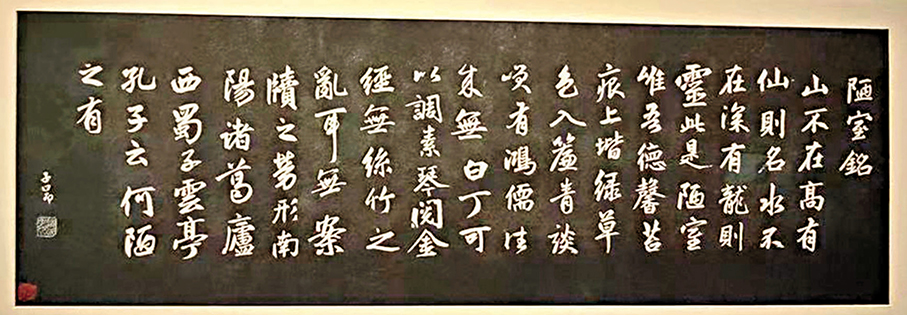 陋室銘
山不在高有
仙則名水不
在深有龍則
靈此是陋室
惟吾德馨苔
痕上堦緑草
色入簾青談
笑有鴻儒往
来無白丁可
以調素琴閲金
經無絲竹之
亂耳無案
牘之勞形南
陽諸葛廬
西蜀子雲亭
孔子云何陋
之有
子昂